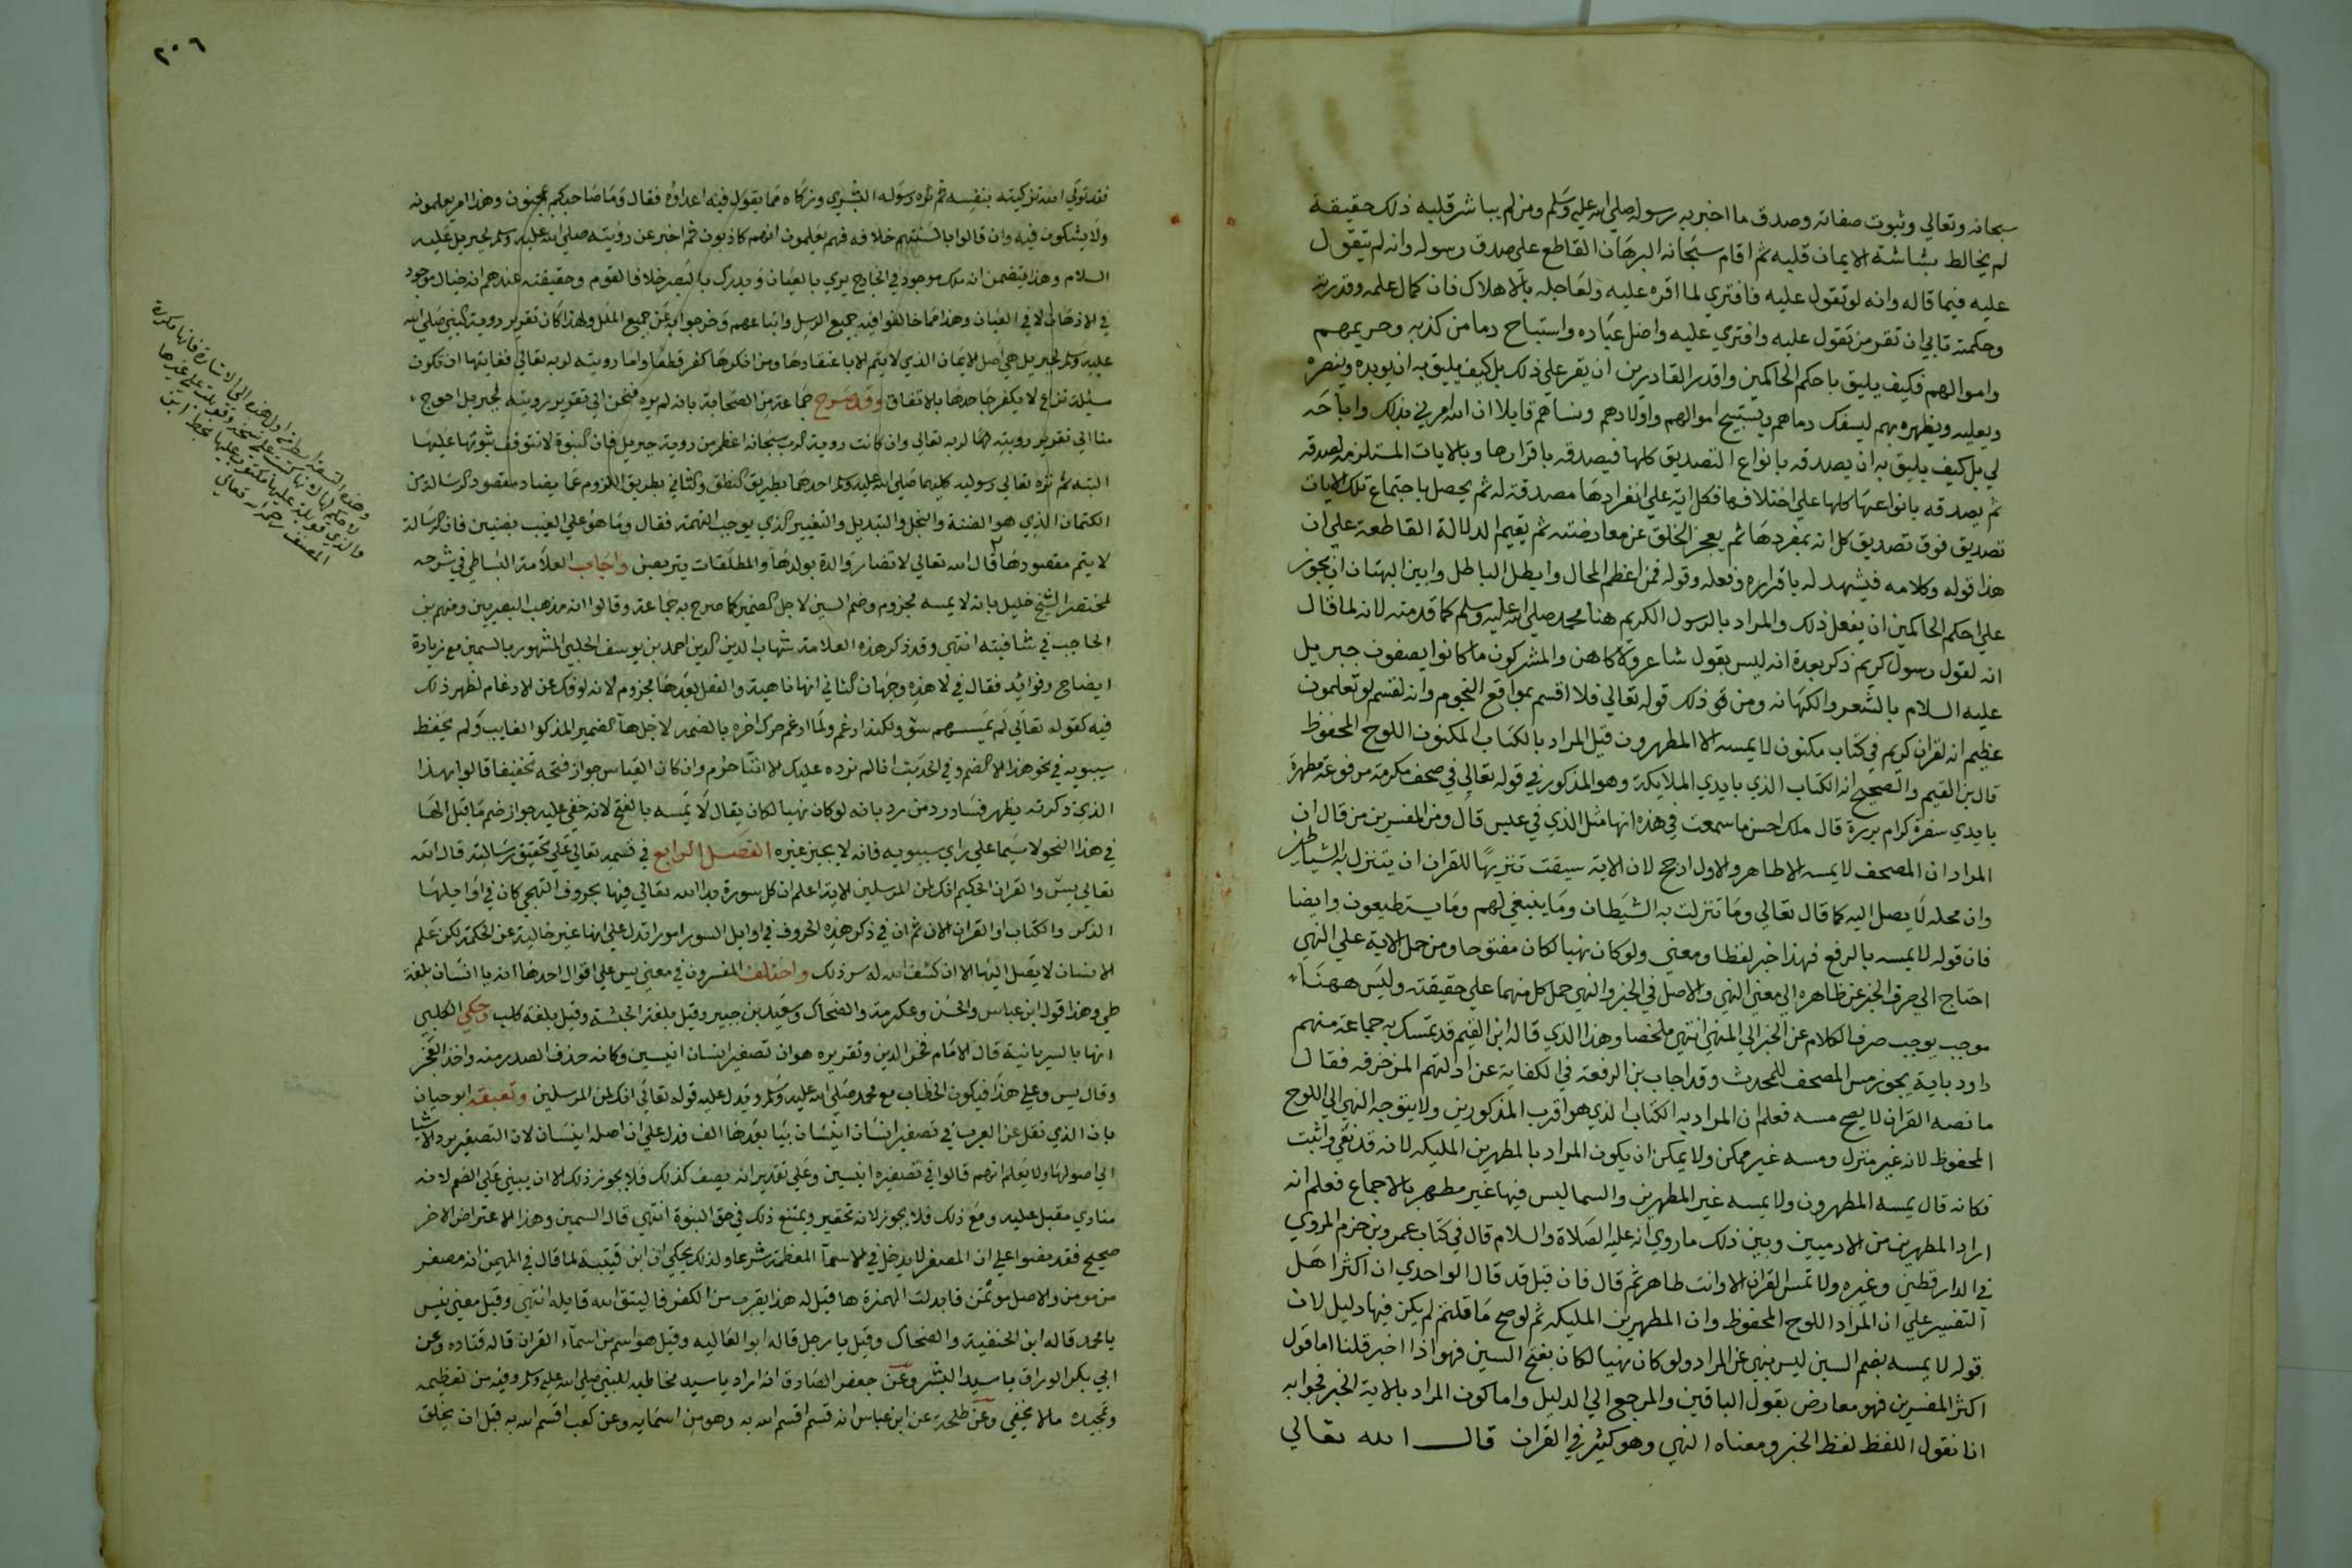 سبحانه وتعالي وثبوت صفاته وصدق ما اخبر به رسوله صلى الله عليه وسلم ومن لم يباشر قلبه ذلك حقيقة
لم يخالط بشاشة الايمان قلبه ثم اقام سبحانه البرهان القاطع على صدق رسوله وانه لم يتقول
عليه فيما قاله وانه لو تقول عليه فافتري لما اقره عليه ولعاجله بالاهلاك فان كمال علمه وقدرته
وحكمته تابي ان تقر من تقول عليه وافتري عليه واضل عباده واستباح دما من كذبه وحريمهم
واموالهم فكيف يليق باحكم الحاكمين واقدر القادرين ان يقر علي ذلك بل كيف يليق به ان يويده وينصره
ويعليه ويظهره بهم ليسفك دماهم ويستبيح اموالهم واولادهم ونساهم قايلا ان الله امرني بذلك واباحه
لي بل كيف يليق به ان يصدقه بانواع التصديق كلها فيصدقه باقرارها وبالايات المستلزمة لصدقه
ثم يصدقه بانواعها كلها علي اختلافها فكل اية علي انفرادها مصدقة له ثم يحصل باجتماع تلك الايات
تصديق فوق تصديق كل اية بمفردها ثم يعجز الخلق عن معارضته ثم يقيم الدلالة القاطعة علي ان
هذا قوله وكلامه فيشهد له باقراره وفعله وقوله فمن اعظم المحال وابطل الباطل وابين البهتان ان يجوز
علي احكم الحاكمين ان يفعل ذلك والمراد بالرسول الكريم هنا محمد صلى الله عليه وسلم كما قدمته لانه لما قال
انه لقول رسول كريم ذكر بعدة انه ليس بقول شاعر ولا كاهن والمشركون ما كانوا يصفون جبريل
عليه السلام بالشعر والكهانه ومن ذلك قوله تعالي فلا اقسم بمواقع النجوم وانه لقسم لو تعلمون
عظيم انه لقران كريم في كتاب مكنون لا يمسه الا المطهرون قيل المراد بالكتاب المكنون اللوح المحفوظ
قال بن القيم والصحيح انه الكتاب الذي بايدي الملايكة وهو المذكور في قوله تعالى في صحف مكرمة مرفوعة مطهرة
بايدي سفرة كرام بررة قال ملك احسن ما سمعت في هذه انها مثل الذي في عبس قال ومن المفسرين من قال ان
المراد ان المصحف لا يمسه الا طاهر والاول ارجح لان الاية سيقت تنزيها للقران ان يتنزل به الشياطين
وان محله لا يصل اليه كما قال تعالي وما تنزلت به الشيطان وما ينبغي لهم وما يستطيعون وايضا
فان قوله لا يمسه بالرفع فهذا خبر لفظا ومعني ولو كان نهيا لكان مفتوحا ومن حمل الاية علي النهي
احتاج الي صرف الخبر عن ظاهره الي معني النهي والاصل في الخبر والنهي حمل كل منهما علي حقيقته وليس ههنا
موجب يوجب صرف الكلام عن الخبر الي النهي انتهي ملخصا وهذا الذي قاله ابن القيم قد تمسك به جماعة منهم
داود بانه يجوز مس المصحف للمحدث وقد اجاب بن الرفعة في الكفاية عن ادلتهم المزخرفه فقال
ما نصه القران لا يصح مسه فعلم ان المراد به الكتاب الذي هو اقرب المذكورين ولا يتوجه النهي الي اللوح
المحفوظ لانه غير منزل ومسه غير ممكن ولا يمكن ان يكون المراد بالمطهرين المليكه لانه قد نفي واثبت
فكانه قال يمسه المطهرون ولا يمسه غير المطهرين والسما ليس فيها غير مطهر بالاجماع فعلم انه
اراد المطهرين من الادميين وبين ذلك ما روي انه عليه الصلاة والسلام قال في كتاب عمرو بن حزم المروي
في الدارقطني وغيره ولا تمس القران الا وانت طاهر ثم قال فان قيل قد قال الواحدي ان اكثر اهل
التفسير علي ان المراد اللوح المحفوظ وان المطهرين المليكه ثم لو صح ما قلتم لم يكن فيها دليل لان
قوله لا يمسه بضم السين ليس بنهي عن المراد ولو كان نهيا لكان بفتح السين فهو اذا اخبر قلنا اما قول
اكثر المفسرين فهو معارض بقول الباقين والمرجع الي الدليل واما كون المراد بالاية الخبر فجوابه
انا نقول اللفظ لفظ الخبر ومعناه النهي وهو كثير في القران قال الله تعالي
٢٠٦
فقد تولي الله تزكيته بنفسه ثم نزه رسوله البشري وزكاه مما يقول فيه اعداؤه فقال وما صاحبكم بمجنون وهذا امر يعلمونه
ولا يشكون فيه وان قالوا بالسنتهم خلافه فهم يعلمون انهم كاذبون ثم اخبر عن رؤيته صلى الله عليه وسلم لجبريل عليه
السلام وهذا يتضمن انه ملك موجود في الخارج يري بالعيان ويدرك بالبصر خلافا لقوم وحقيقته عندهم انه خيال موجود
في الاذهان لا في العيان وهذا مما خالفوا فيه جميع الرسل واتباعهم وخرجوا به عن جميع الملل ولهذا كان تقرير روية النبي صلى الله
عليه وسلم لجبريل هي اصل الايمان الذي لا يتم الا باعتقادها ومن انكرها كفر قطعا واما رويته لربه تعالي فغايتها ان تكون
مسئلة نزاع لا يكفر جاحدها بالاتفاق وقد صرح جماعة من الصحابة بانه لم يره فنحن الي تقرير رويته لجبريل احوج
منا الي تقرير رويته لربه تعالي وان كانت روية الرب سبحانه اعظم من روية جبريل فان النبوة لا تتوقف ثبوتها عليها
البته ثم نزه تعالي رسوليه كليهما صلى الله عليه وسلم احدهما بطريق النطق والثاني بطريق اللزوم عما يضاد مقصود الرسالة من
الكتمان الذي هو الضنة والبخل والتبديل والتغيير الذي يوجب التهمة فقال وما هو علي الغيب بضنين فان الرسالة
لا يتم مقصودها قال الله تعالي لا تضار والدة بولدها والمطلقات يتربصن واجاب العلامة البساطي في شرحه
لمختصر الشيخ خليل بانه لا يمسه مجزوم وضم السين لاجل الضمير كما صرح به جماعة وقالوا انه مذهب البصريين ومنهم بن
الحاجب في شافيته انتهي وقد ذكر هذه العلامة شهاب الدين احمد بن يوسف الحلبي المشهور بالسمين مع زيادة
ايضاح وفوايد فقال في لا هذه وجهان الثاني انها ناهية والفعل بعدها مجزوم لانه لو فك عن الادغام لظهر ذلك
فيه كقوله تعالي لم يمسسهم سؤ ولكنه ادغم ولما ادغم حرك اخره بالضمة لاجل هآ الضمير المذكور الغايب ولم يحفظ
سيبويه في نحو هذا الا الضم وفي الحديث انا لم نرده عليك الا انا حرم وان كان القياس جواز فتحه تخفيفا قالوا بهذا
الذي ذكرته يظهر فساد رد من رد بانه لو كان نهيا لكان يقال لا يمسه بالفتح لانه خفي عليه جواز ضم ما قبل الها
في هذا النحو لا سيما علي راي سيبويه فانه لا يجيز غيره الفصل الرابع في قسمه تعالي علي تحقيق رسالته قال الله
تعالي يس والقران الحكيم انك لمن المرسلين الاية اعلم ان كل سورة بدا الله تعالي فيها بحروف التهجي كان في اوايلها
الذكر والكتاب او القران الا ن ثم ان في ذكر هذه الحروف في اوايل السور امورا تدل علي انها غير خالية عن الحكمة لكن علم
الانسان لا يصل اليها الا ان كشف الله له سر ذلك واختلف المفسرون في معني يس علي اقوال احدها انه يا انسان بلغة
طي وهذا قول ابن عباس والحسن وعكرمة والضحاك وسعيد بن جبير وقيل بلغة الحبشة وقيل بلغة كلب وحكي الكلبي
انها بالسريانية قال الامام فخر الدين وتقريره هو ان تصغير انسان انيسين وكانه حذف الصدر منه واخذ العجز
وقال يس وعلي هذا فيكون الخطاب مع محمد صلى الله عليه وسلم ويدل عليه قوله تعالي انك لمن المرسلين وتعقبه ابو حيان
بان الذي نقل عن العرب في تصغير انسان انيسان بيا بعدها الف فدل علي ان اصله انيسان لان التصغير يرد الاشيا
الي اصولها ولا يعلم انهم قالوا في تصغيره انيسين وعلي تقدير انه يصغر كذلك فلا يجوز ذلك الا ان يبني علي الضم لانه
منادي مقبل عليه ومع ذلك فلا يجوز لانه تحقير ويمتنع ذلك في حق النبوة انتهي قال السمين وهذا الاعتراض الاخر
صحيح فقد نصوا علي ان المصغر لا يدخل في الاسمآ المعظمة شرعا ولذلك يحكي ان ابن قتيبة لما قال في المهيمن انه مصغر
من مومن والاصل مويمن فابدلت الهمزة ها قيل له هذا يقرب من الكفر فاليتق الله قايله انتهي وقيل معني يس
يا محمد قاله ابن الحنفية والضحاك وقيل يا رجل قاله ابو العاليه وقيل هو اسم من اسمآء القران قاله قتاده وعن
ابي بكر الوراق يا سيد البشر وعن جعفر الصادق انه اراد يا سيد مخاطبه للنبي صلى الله عليه وسلم وفيه من تعظيمه
وتمجيده ما لا يخفي وعن طلحة عن ابن عباس انه قسم اقسم الله به وهو من اسمايه وعن كعب اقسم الله به قبل ان يخلق